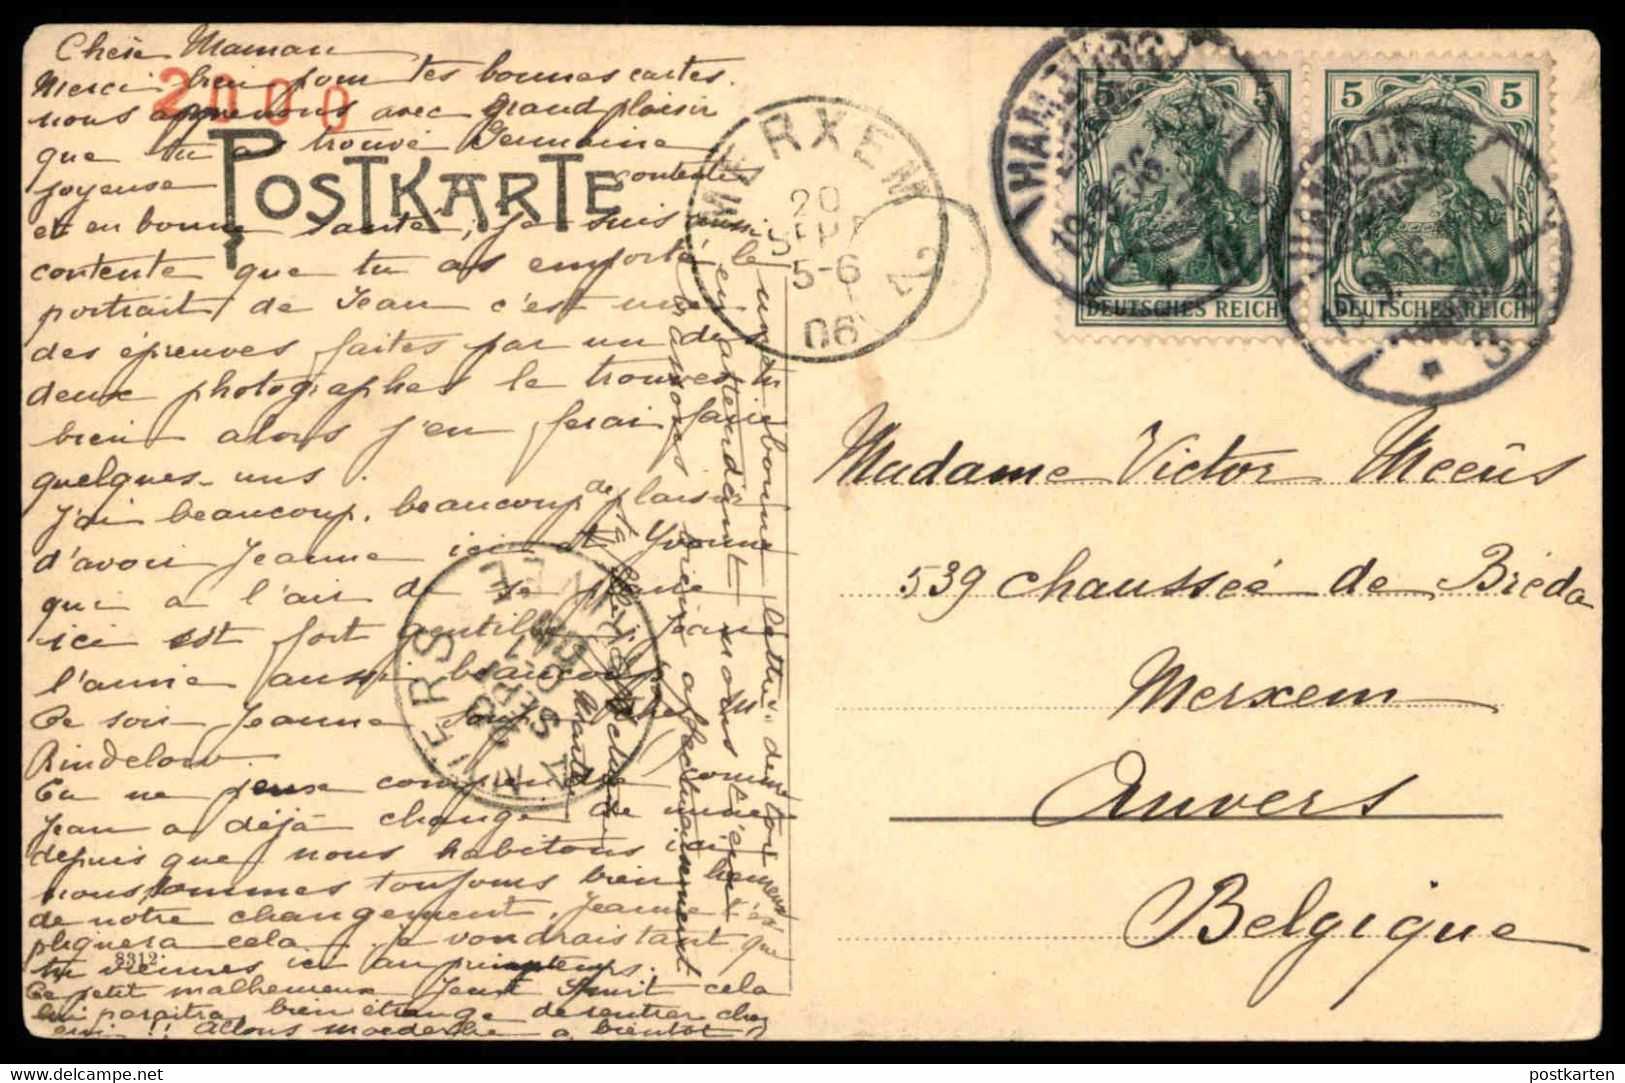 Chère Maman
Merci bien pour tes bonnes cartes.
nous apprenons avec grand plaisir
que tu as trouvé Germaine
joyeuse contente
et en bonne santé, je suis aussi
contente que tu as emporté le
portrait de Jean c'est une
des épreuves faites par un des
deux photographes le trouves tu
bien alors j'en ferai faire
quelques-uns.
J'ai beaucoup, beaucoup de plaisir
d'avoir Jeanne ici et Yvonne
qui a l'air de se plaire
ici est fort gentille. Jean
l'aime aussi beaucoup
Ce soir Jeanne
Tu ne peux comprendre comme
Jean a déjà changé de mine
depuis que nous habitons ici
nous sommes toujours bien heureux
de notre changement, Jeanne t'ex
pliquera cela. Je voudrais tant que
tu viennes ici au printemps.
Ce petit malheureux
lui paraitra bien étrange de rentrer chez
à bientôt
une bonne lettre de
en attendant
2000
POSTKARTE
8312
MERXEM
20
SEPT
5-6
06
ANVERS
HAMBURG
19.9.06
1
HAMBURG
1
5 5
DEUTSCHES REICH
5 5
DEUTSCHES REICH
Madame Victor Meeûs
539 chaussée de Bréda
Merxem
Anvers
Belgique
www.delcampe.net
postkarten